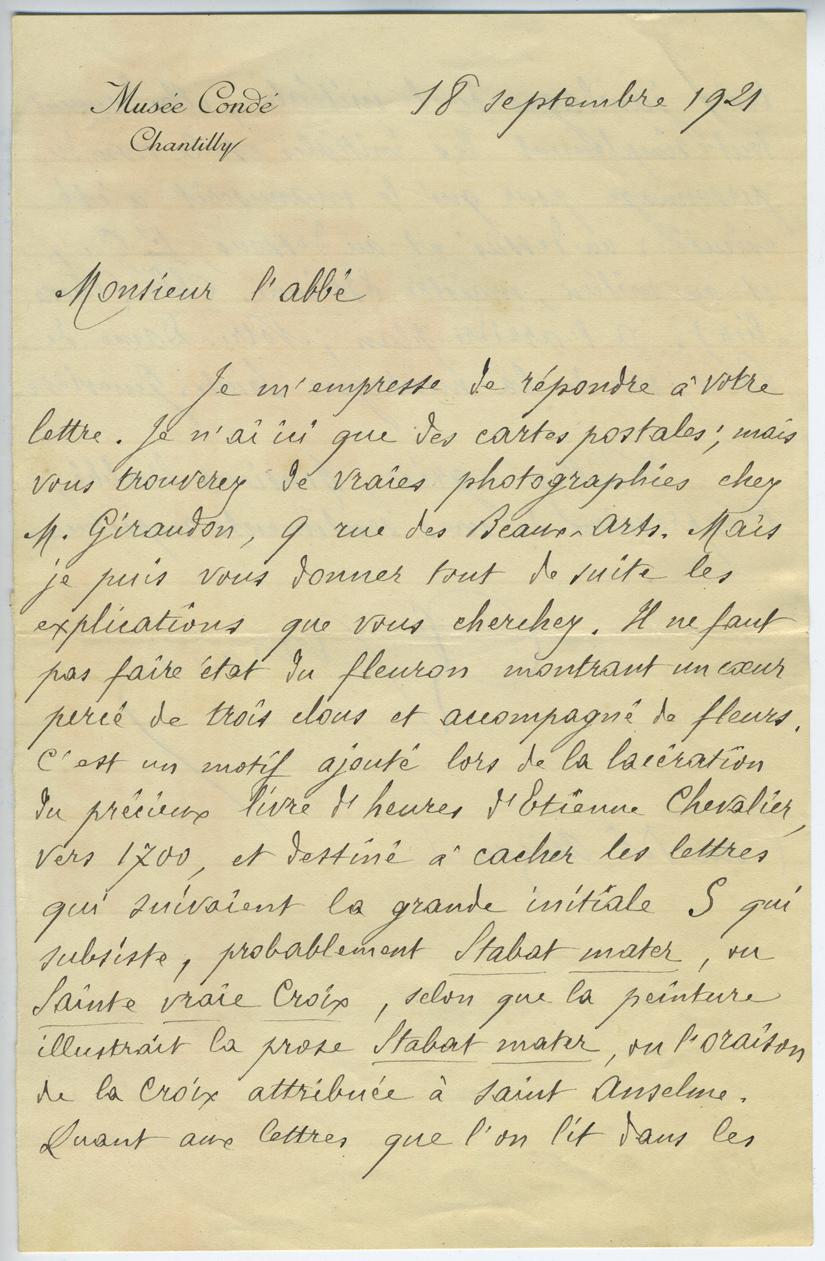 Musée Condé
Chantilly
18 septembre 1921
Monsieur l'abbé
Je m'empresse de répondre à votre
lettre. Je n'ai ici que des cartes postales ; mais
vous trouverez de vraies photographies chez
M. Giraudon, 9 rue des Beaux-Arts. Mais
je puis vous donner tout de suite les
explications que vous cherchez. Il ne faut
pas faire état du fleuron montrant un cœur
percé de trois clous et accompagné de fleurs.
C'est un motif ajouté lors de la lacération
du précieux livre d'heures d'Etienne Chevalier,
vers 1700, et destiné à cacher les lettres
qui suivaient la grande initiale S qui
subsiste, probablement Stabat mater, ou
Sainte vraie Croix, selon que la peinture
illustrait la prose Stabat mater, ou l'oraison
de la Croix attribuée à saint Anselme.
Quant aux lettres que l'on lit dans les